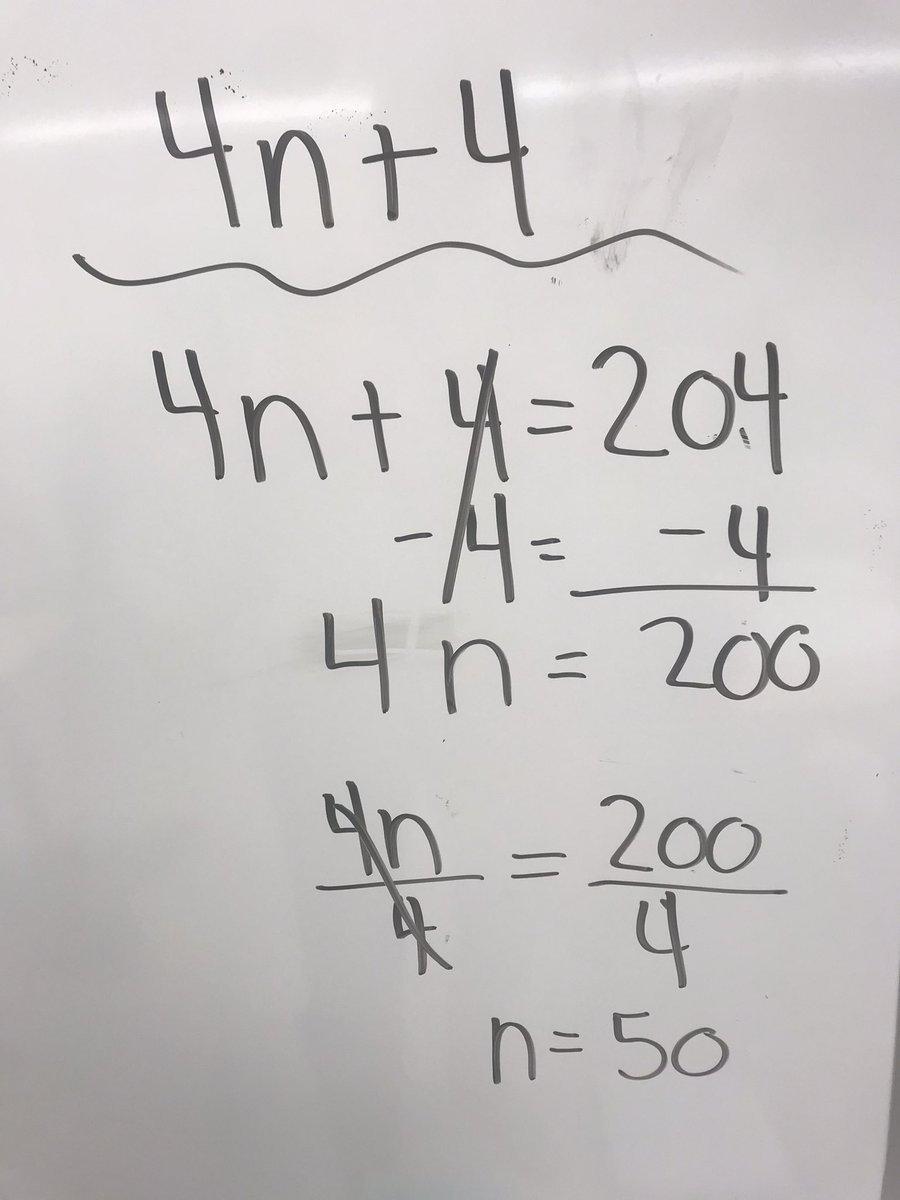 4n+4
4n+4=204
-4= -4
4n = 200
4n = 200
4 4
n=50